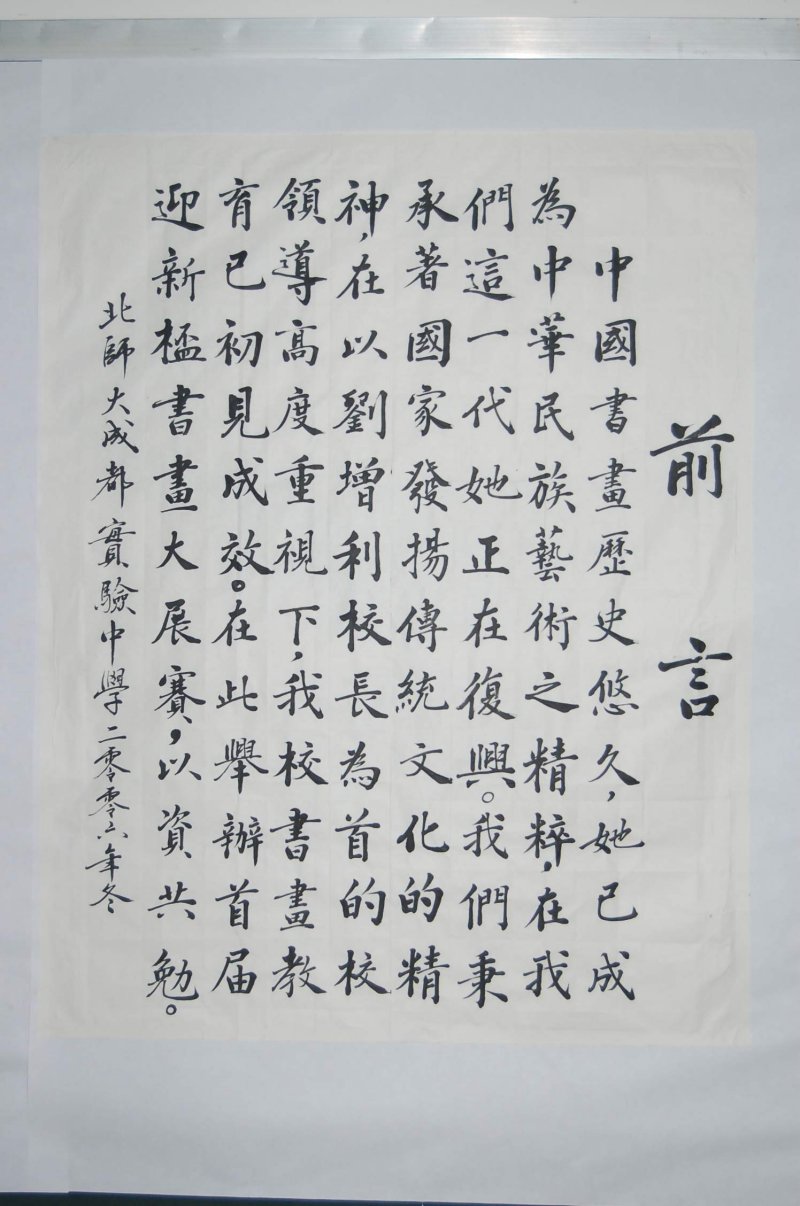 前言
中國書畫歷史悠久,她已成
為中華民族藝術之精粹,在我
們這一代她正在復興。我們秉
承著國家發揚傳統文化的精
神,在以劉增利校長為首的校
領導高度重視下,我校書畫教
育已初見成效。在此舉辦首届
迎新桮書畫大展賽,以資共勉。
北師大成都實驗中學二零零六年冬